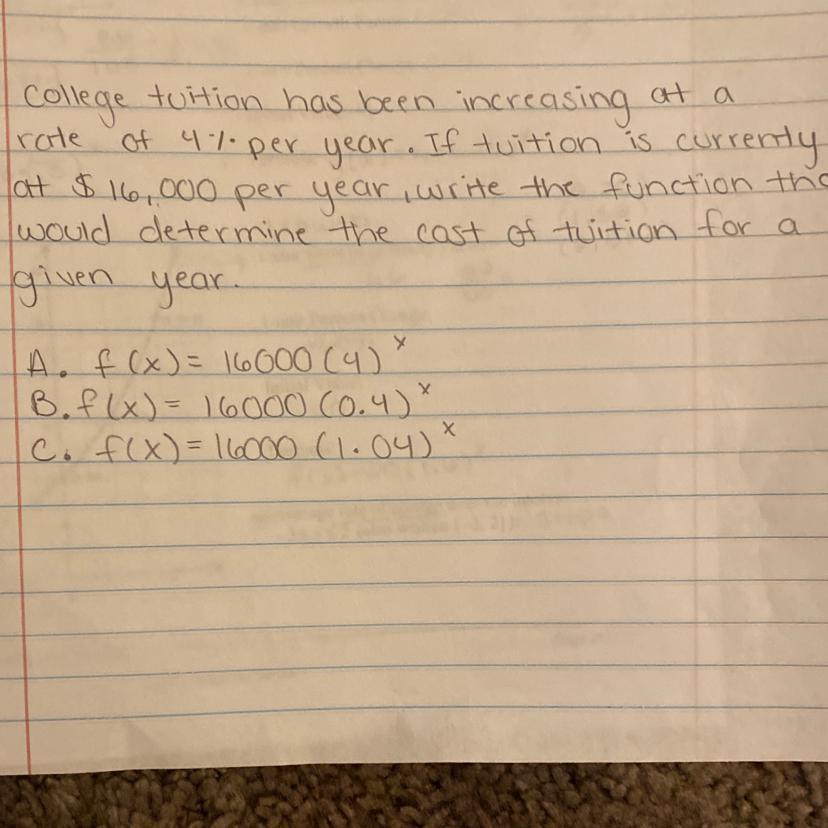 College tuition has been increasing at a
rate of 4% per year. If tuition is currently
at $16,000 per year, write the function tha
would determine the cost of tuition for a
given year.
A. f(x) = 16000(4)^x
B. f(x) = 16000(0.4)^x
C. f(x) = 16000(1.04)^x